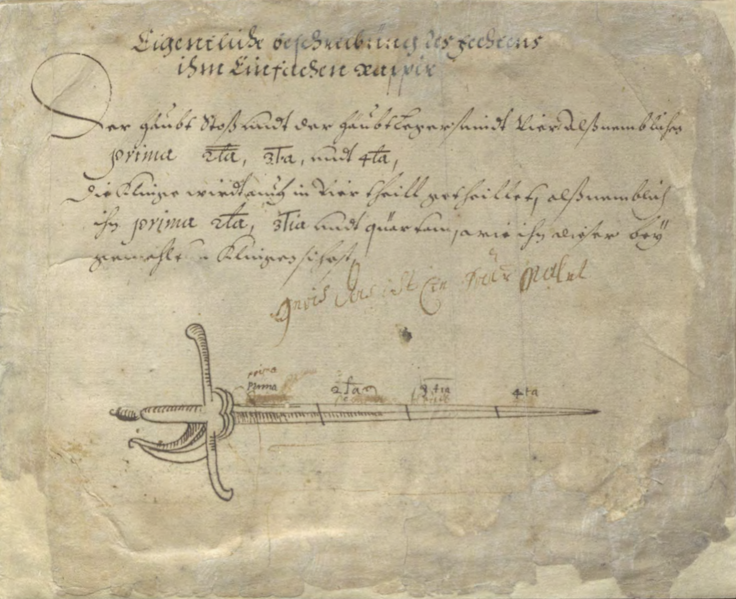 Eigentliche beschreibung des fechtens
ihm Einfachen rappir
Der haubt Stoß undt der haubtleger sindt Vier alß nemblichen
prima 2ta, 3tia, undt 4ta,
die Klinge wirdt auch in Vier theill getheillet, alß nemblich
ihn prima 2ta, 3tia undt quartam, wie ihn dieser bey
gemahlten Klingen
prima
prima
2ta
3tia
4ta